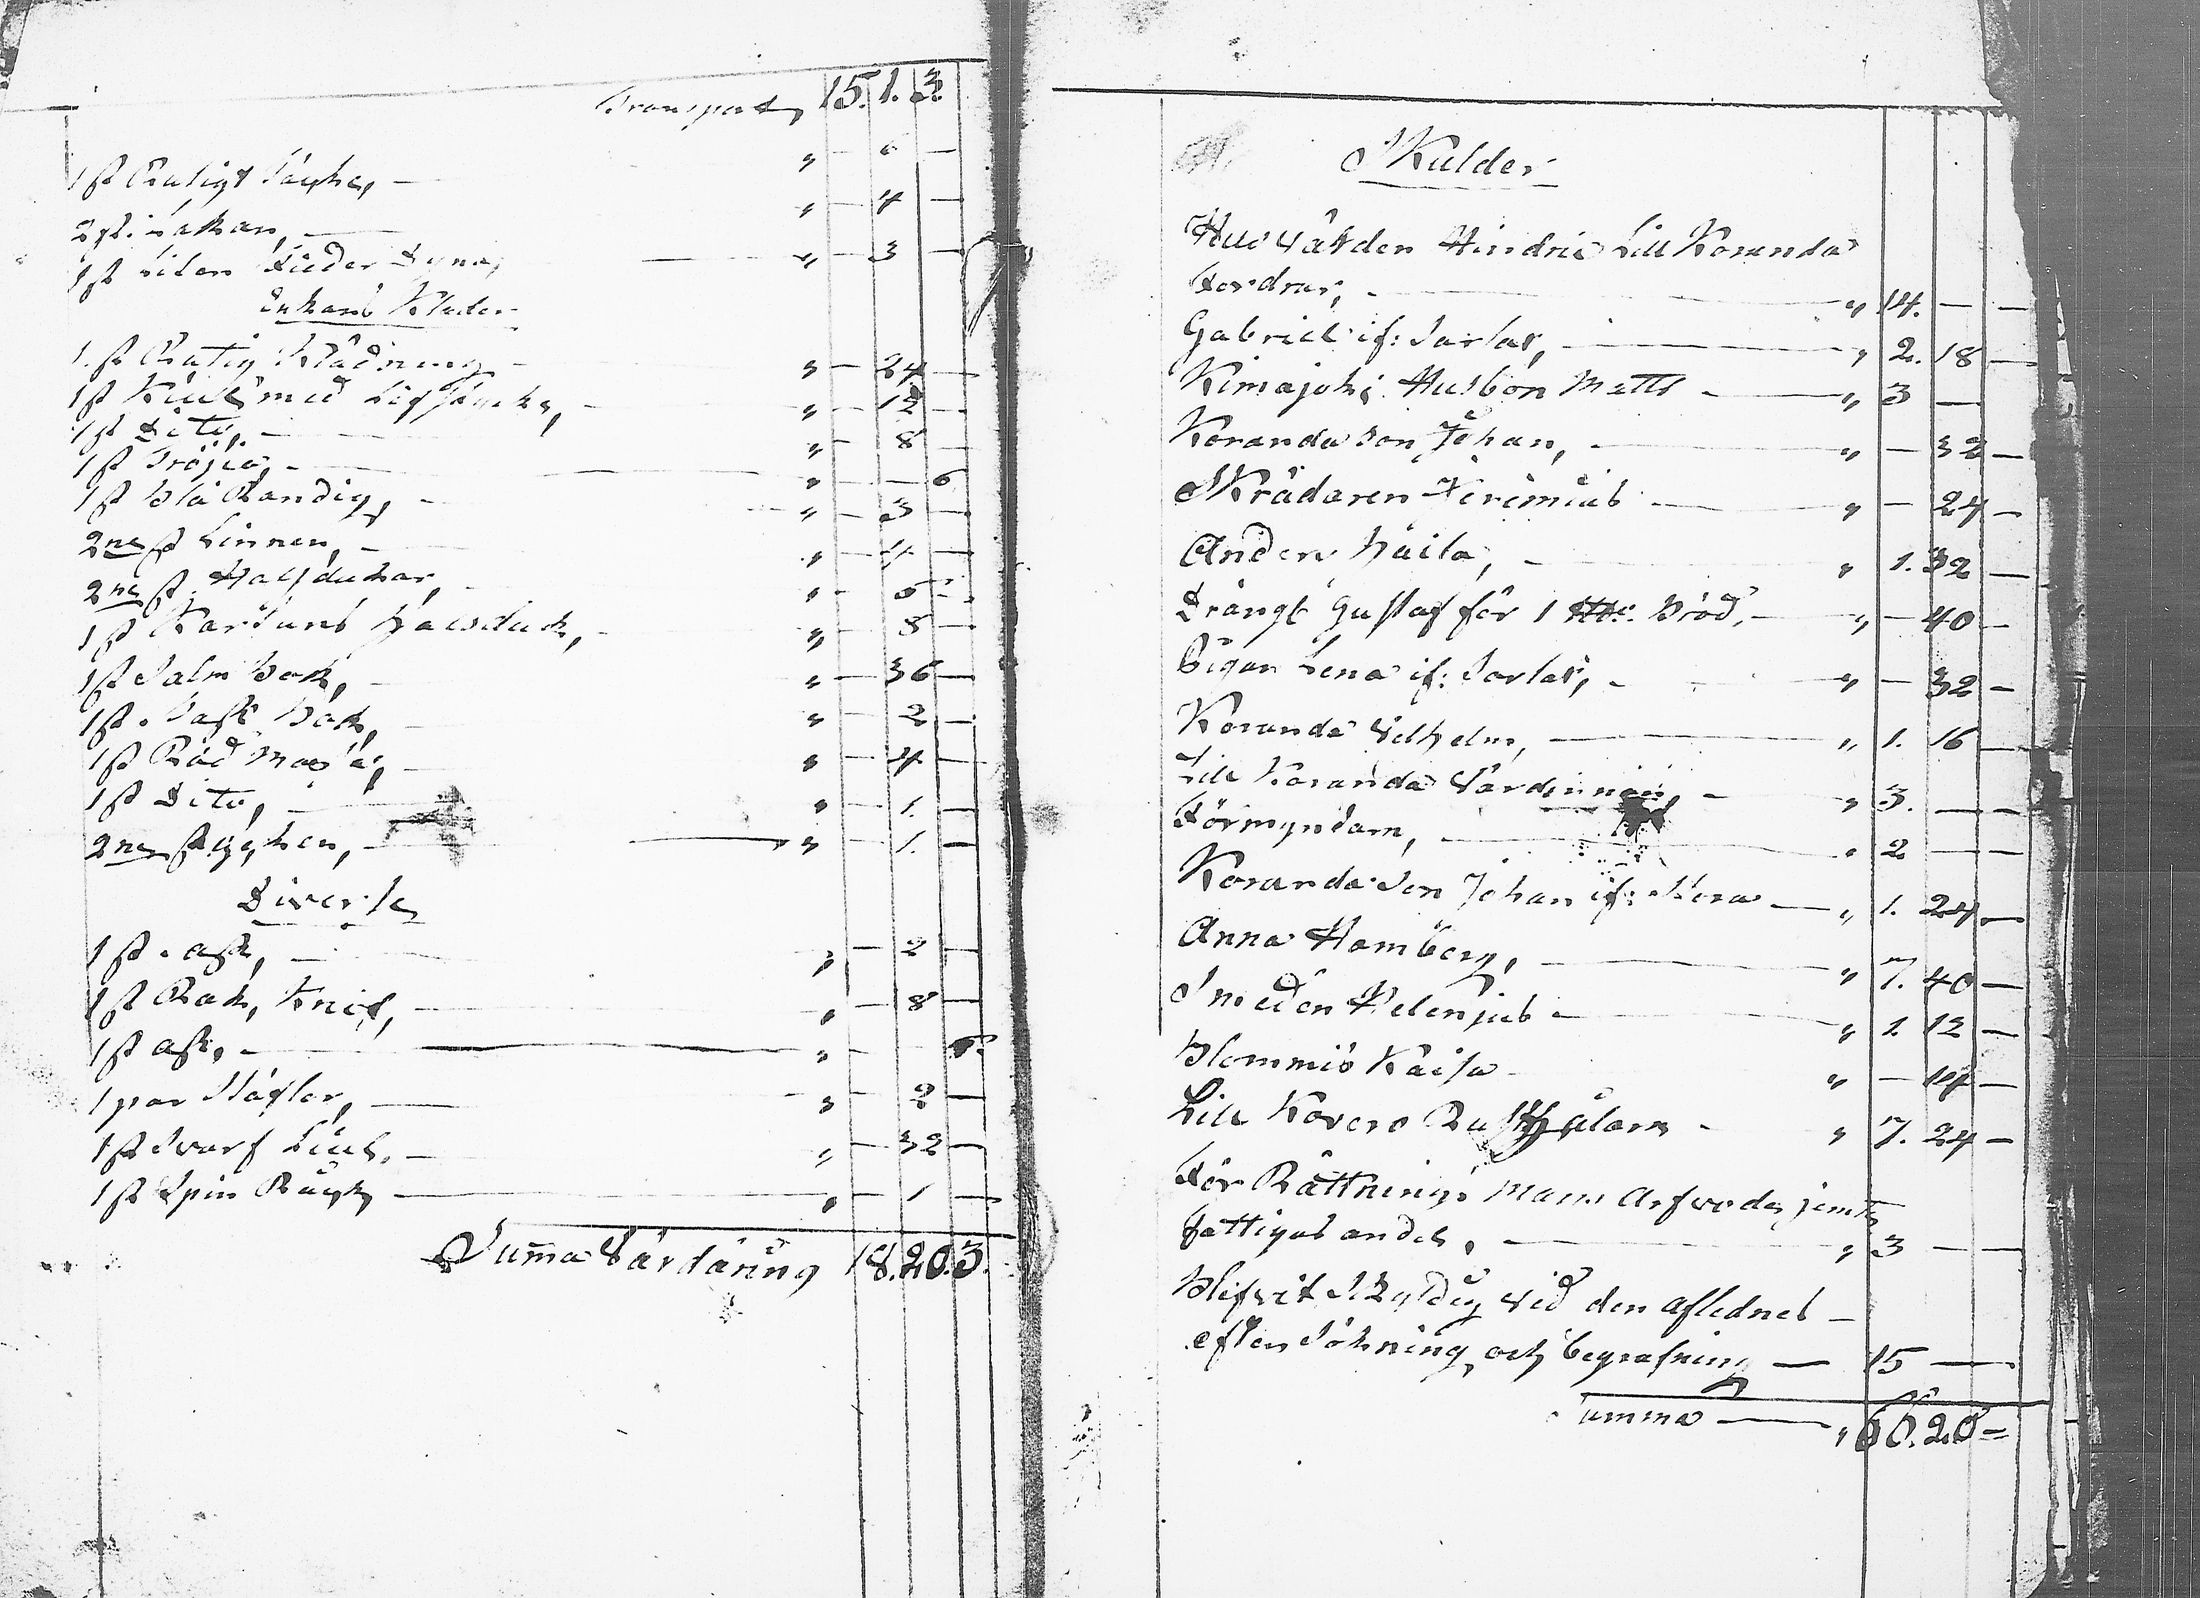 Transport, 15. 1. 3.
1 st Rutigt Täcke, — " — 6 —
2 st. Lakan, — " — 4 —
1 st Liten Fieder Dyna, — " — 3 —
Enkans Kläder
1 st Rutig Klädning — " — 24 —
1 st Kiul med Lifstycke, — " — 12 —
1 st Dito, — " — 8 —
1 st Tröjia, — " — — 6
1 st Blå Randig, — " — 3 —
2ne st Linnen, — " — 4 —
2ne st. Halsdukar, — " — 6 —
1 st Kartuns Halsduk, — " — 8 —
1 st Salm Bok, — " — 36 —
1 st. Bok, — " — 2 —
1 st Röd — " — 4 —
1 st Dito, — " — 1. —
2ne st — " — 1. —
Diverse
1 st. ask, — " — 2 —
1 st Rak, Knif, — " — 8 —
1 st ask, — " — — 6.
1 par — " — 2 —
1 st — " — 32 —
1 st Spin Råck, — " — 1 —
Suma Värdäring 18. 20. 3.
Skulder
Husvärden Hindric Lill Koranda
Fordrar, — " 14. — —
Gabriel if: Sarlax, — " 2. 18 —
Kimajoki Husbon Matts — " 3 —
Koranda Son Johan, — " — 32 —
Skrädaren Jeremias — " — 24 —
Anders Kaisa, — " 1. 32 —
Drängs Gustaf för 1 Bröd, — " — 40 —
Pigan Lena if: Sarlax, — " — 32 —
Koranda Vilhelm, — " 1. 16 —
Lill Koranda Värdinnan, — " 3. — —
Förmyndarn, — " 2 — —
Koranda Son Johan if: — " 1. 24 —
Anna Hamberg, — " 7. 40 —
Smeden — " 1. 12 —
Blommis Kaisa " — 14 —
Lill Kovero Rusthålarn — " 7. 24 —
För Rättnings Mans Arfvode, jemte
fattigas andel, — " 3 — —
Blifvit Skyldig vid den aflednes —
eftersökning och begrafning — 15 —
Summa — " 60. 20 =